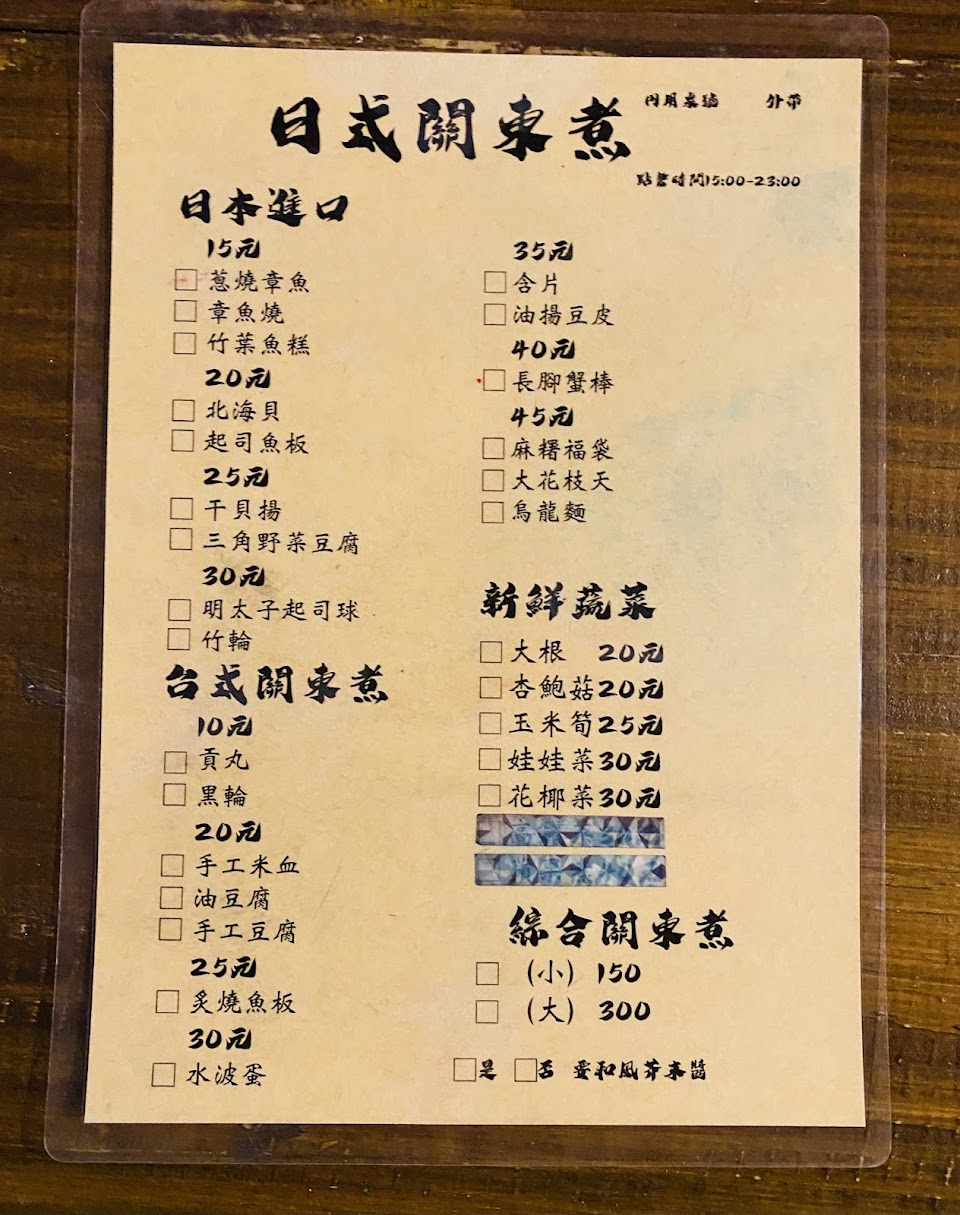 日式關東煮
內用桌號 外帶
點餐時間15:00-23:00
日本進口
15元
蔥燒章魚
章魚燒
竹葉魚糕
20元
北海貝
起司魚板
25元
干貝揚
三角野菜豆腐
30元
明太子起司球
竹輪
台式關東煮
10元
貢丸
黑輪
20元
手工米血
油豆腐
手工豆腐
25元
炙燒魚板
30元
水波蛋
35元
含片
油揚豆皮
40元
長腳蟹棒
45元
麻糬福袋
大花枝天
烏龍麵
新鮮蔬菜
大根 20元
杏鮑菇20元
玉米筍25元
娃娃菜30元
花椰菜30元
綜合關東煮
(小) 150
(大) 300
是 否 要和風芥末醬